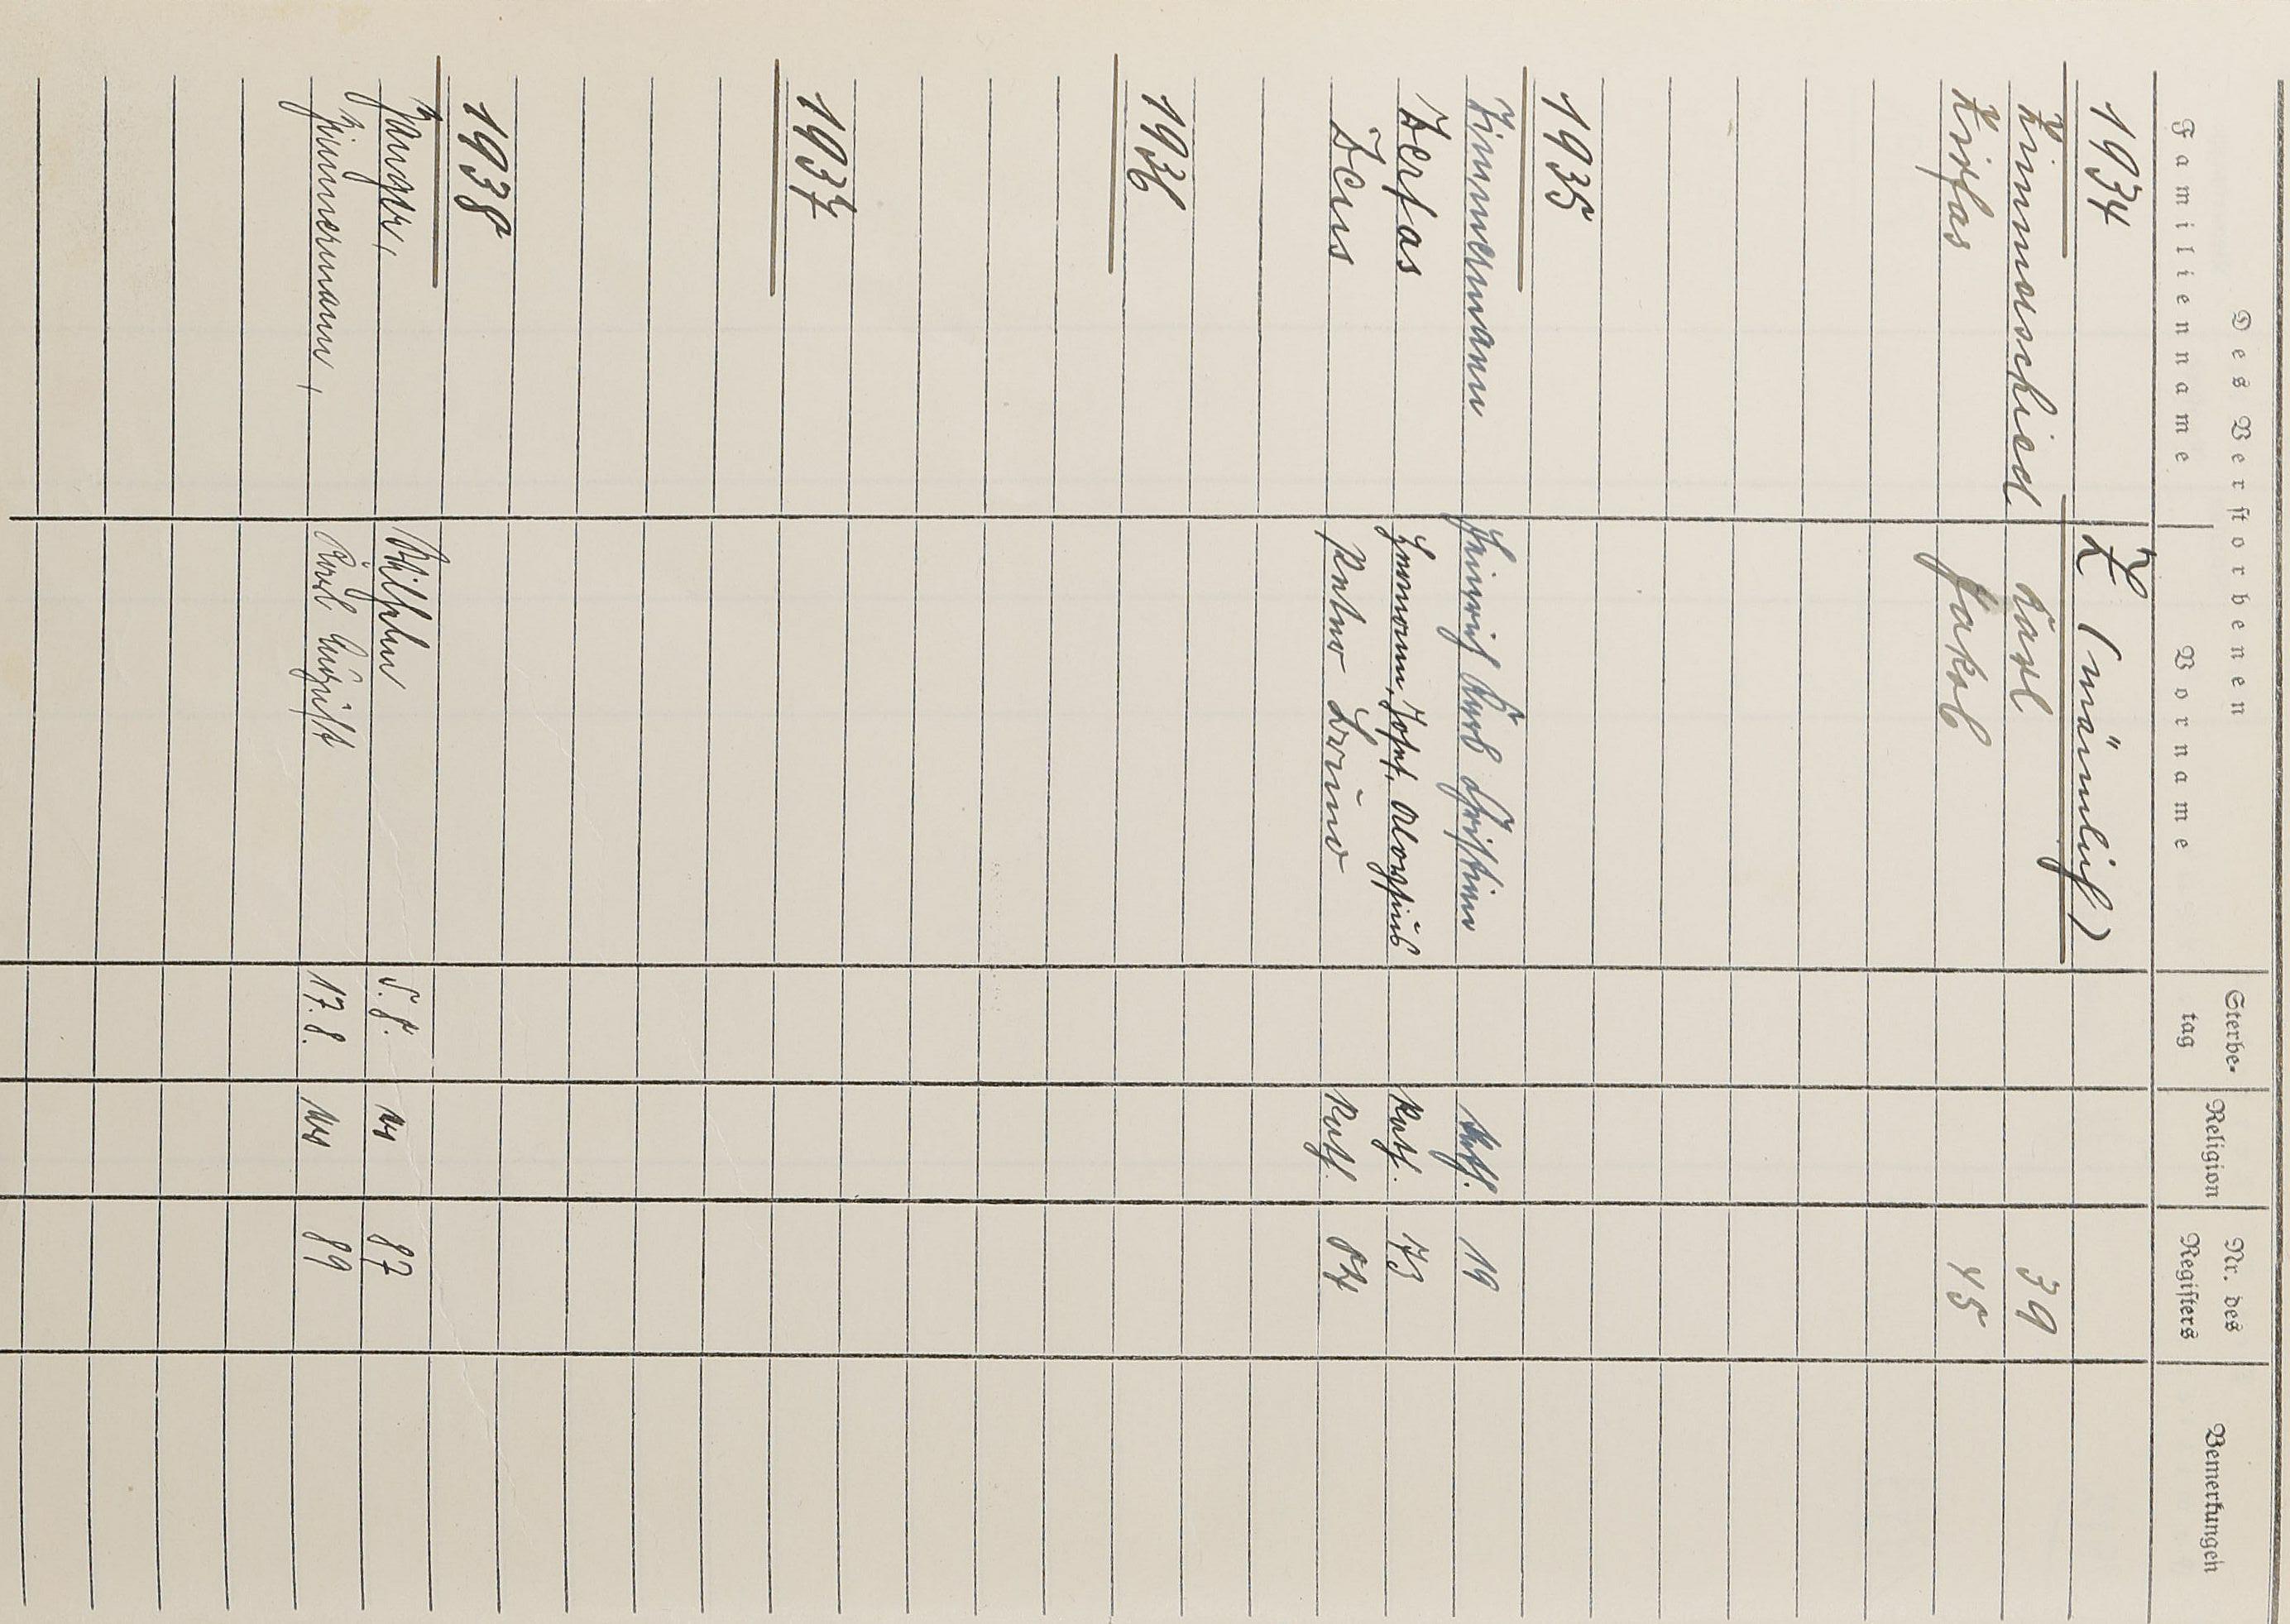 Des Verstorbenen
Familienname Vorname Sterbe-tag Religion Nr. des Registers Bemerkungen
1934 Z (männlich)
Zimmerschied Karl 39
Zirfas Jakob 45
1935
Zimmermann Heinrich Karl Christian kath. 19
Zerfas Hermann, Josef, Aloysius kath. 73
Zeus kath. 84
1936
1937
1938
Zanger, Wilhelm 5.8. 87
Zimmermann, Karl August 17.8. 89